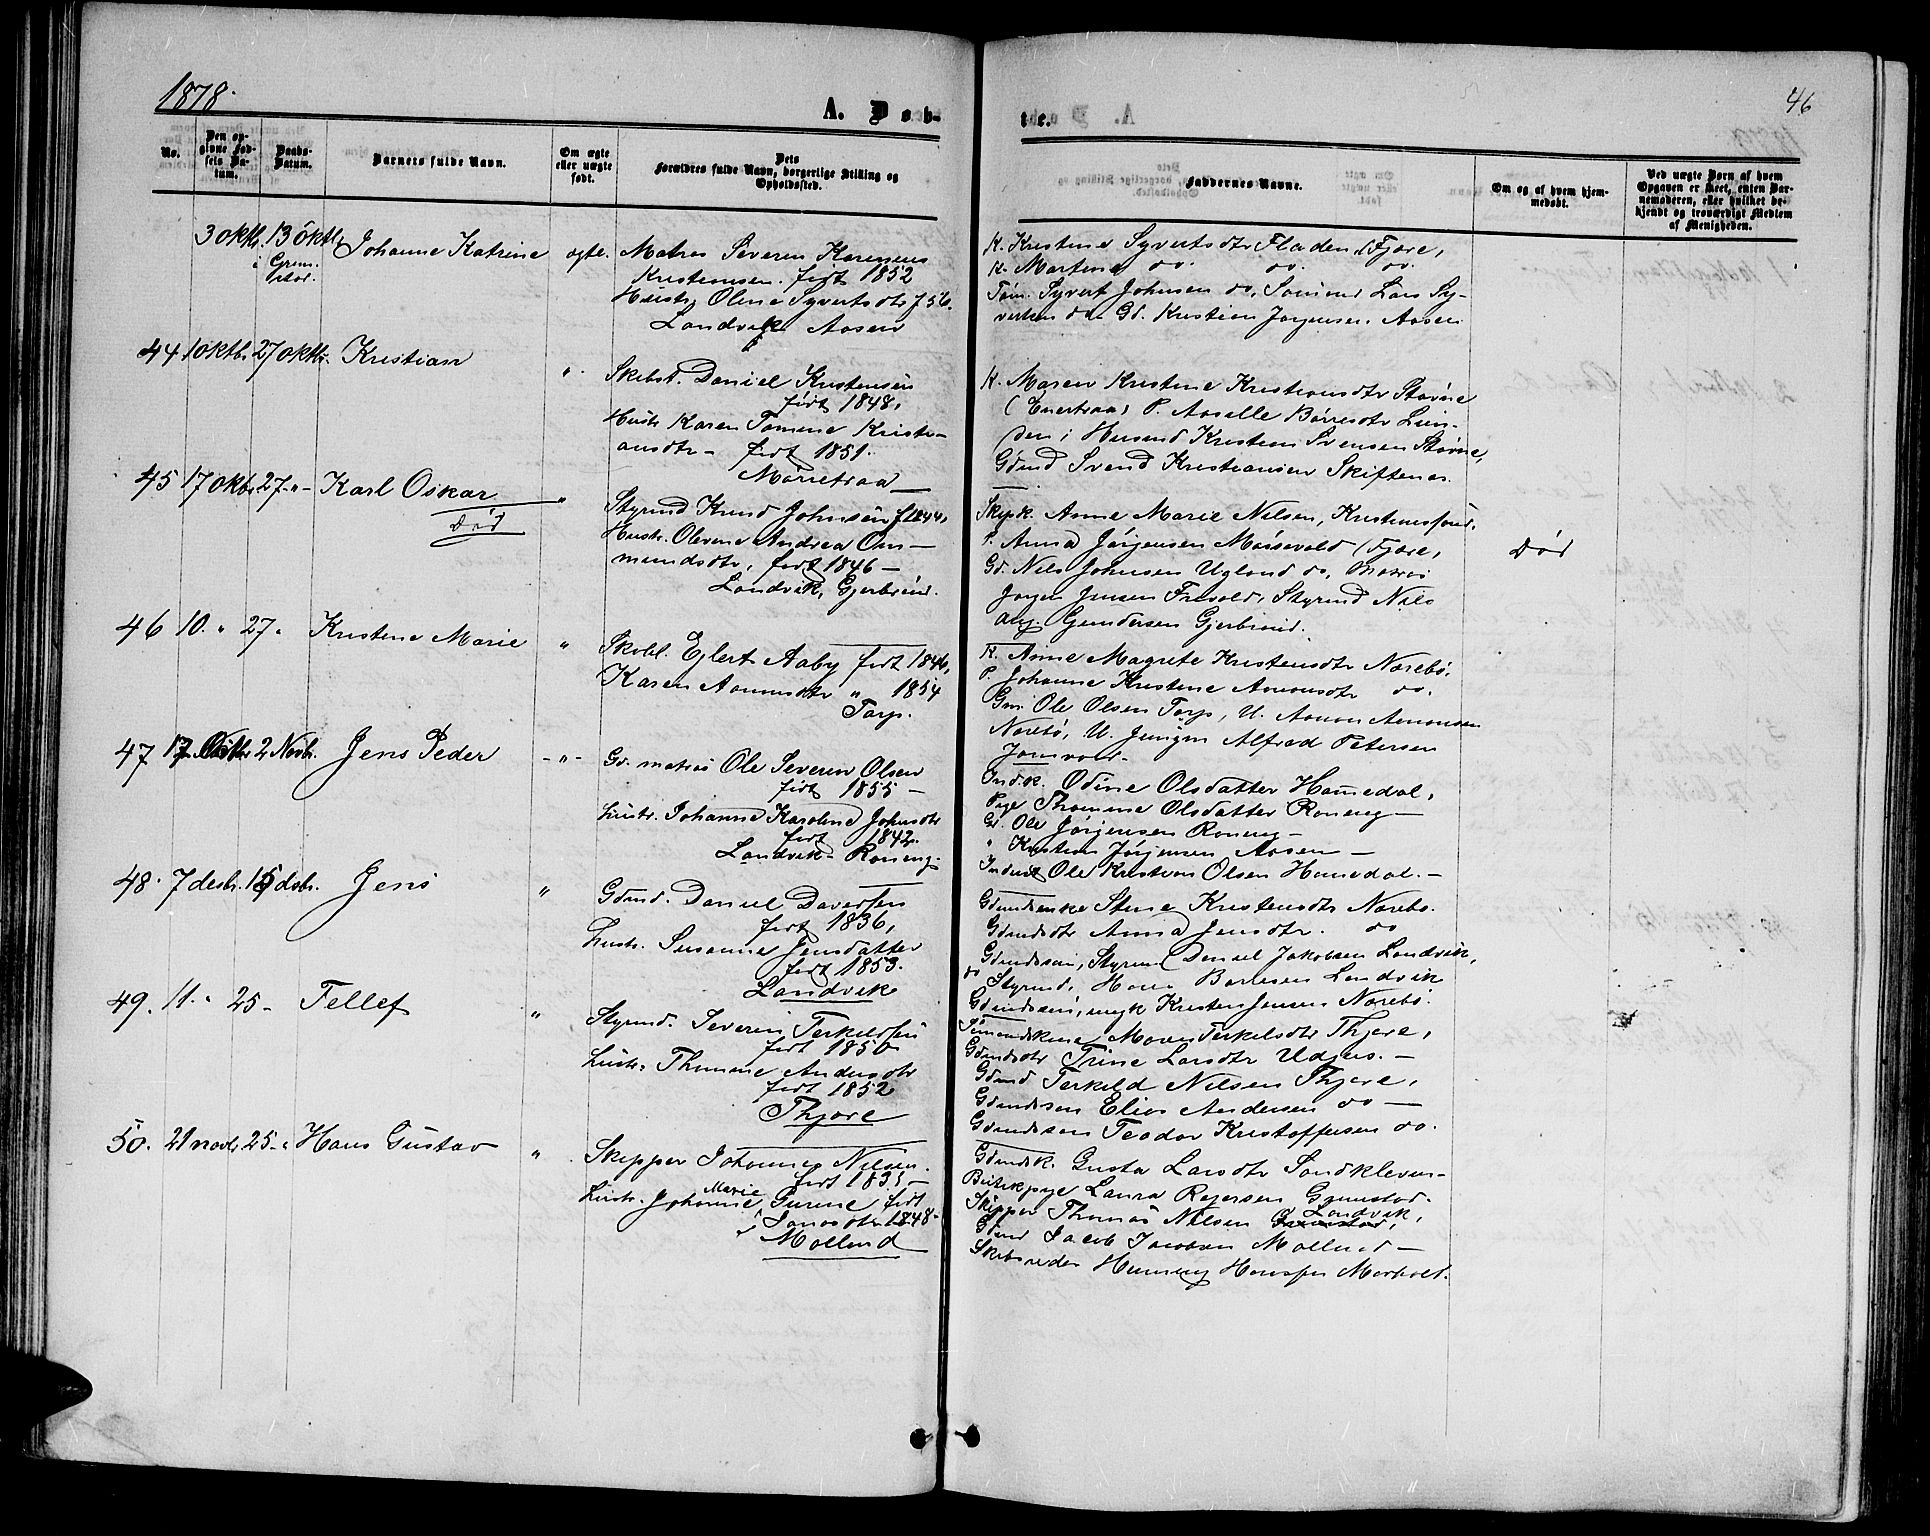 1878.
A. Døb-
te.
46
No.
Den op-
givne Fød-
sels Da-
tum.
Daabs-
Datum.
Barnets fulde Navn.
Om ægte
eller uægte
født.
Dets
Forældres fulde Navn, borgerlige Stilling og
Opholdssted.
Faddernes Navne.
Om og af hvem hjem-
medøbt.
Ved uægte Børn af hvem
Opgaven er skeet, enten Bar-
nemoderen, eller hvilket be-
kjendt og troværdigt Medlem
af Menigheden.
3 oktb. 13 oktb. Johanne Katrine ægte. Matros Severin
i Grim-
stad.
Kristiansen. født 1852
Hustr. Oline Syvertsdtr f. 56.
Landvik Aasen
K. Kristine Syvertsdtr Fladen (Fjære,
K. Martine do. do. do.
Tøm. Syvert Johnsen do, Lars Sy-
vertsen do Gd. Kristian Jørgensen Aasen
44 1 oktb. 27 oktb. Kristian " Skibst. Daniel Kristensen
født 1848,
Hustr Karen Tomine Kristi-
ansdtr - født 1851.
Morretraa
K. Maren Kristine Kristiansdtr Størne
P. Aaselle Børresdtr Lun-
den; Husmd Kristian Svensen Størne,
Gdmd Svend Kristiansen Skiftenes.
45 17 oktb. 27 " - Karl Oskar "
Død
Styrmd Knud Johnsen f. 1844,
Hustr. Olevine Andrea Om-
mundsdtr, født 1846 -
Landvik, Gjerbrønd.
Skipk. Anne Marie Nilsen,
P. Anna Jørgensen Morsevold (Fjære,
Gd. Nils Johnsen Ugland do, Matros
Jørgen Jensen Frivold, Styrmd Nils
Aug. Gundersen Gjerbrønd.
Død
46 10. " 27 " Kristine Marie " Skobl. Eylert Aaby født 1846,
Karen Aanonsdtr " 1854
Torp.
K. Anne Magrete Kristensdtr Norebø.
P. Johanne Kristine Aanonsdtr do.
Gm. Ole Olsen Torp, U. Aanon Aanonsen
Norebø, U. Jungm Alfred Petersen
Jomvold.
47 17 Oktbr 2 Novb. Jens Peder - " - Gd. matros Ole Severin Olsen
født 1855 -
hustr. Johanne Karoline Johnsdtr
født 1842.
Landvik - Roneng.
Indk. Odine Olsdatter Homedal,
Pige Thomine Olsdatter Roneng -
Gd. Ole Jørgensen Roneng -
" Kristian Jørgensen Aasen -
Inderst Ole Kristian Olsen Homedal. -
48. 7 desbr. dsbr. Jens " Gdmd. Daniel Davidsen
født 1836,
hustr. Susanne Jensdatter
født 1853.
Landvik
Gdmdenke Stine Kristensdtr Norebø.
Gdmdsdtr Anna Jensdtr. do
Gdmdssøn, Styrmd Daniel Jakobsen Landvik,
do Styrmd, Hans Landvik
Gdmdssøn, ungk Kristen Jensen Norebø.
49. 11. " 25 - Tellef " Styrmd. Severin Terkeldsen
født 1850
hustr. Thomine Andersdtr
født 1852
Thjore
Maren Terkelsdtr Thjore,
Gdmdsdtr Trine Larsdtr Udjus. -
Gdmd Terkild Nilsen Thjore,
Gdmdssøn Elias Andersen do -
Gdmdssøn Teodor Kristoffersen do.
50. 21 novb. 25 - " Hans Gustav " Skipper Johannes Nilsen.
født 1835 -
Marie
hustr. Johanne Gurine født
Jansdtr 1848 -
Molland
Gdmdsk. Gusta Larsdtr Sandkleven -
Butikpige Laura Reiersen Grimstad.
Landvik,
Skipper Thomas Nilsen Grimstad,
Gdmd Jacob Jacobsen Molland -
Skibsreder Henning Morholt.